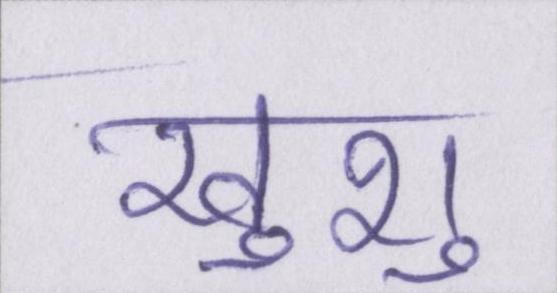 खुशु